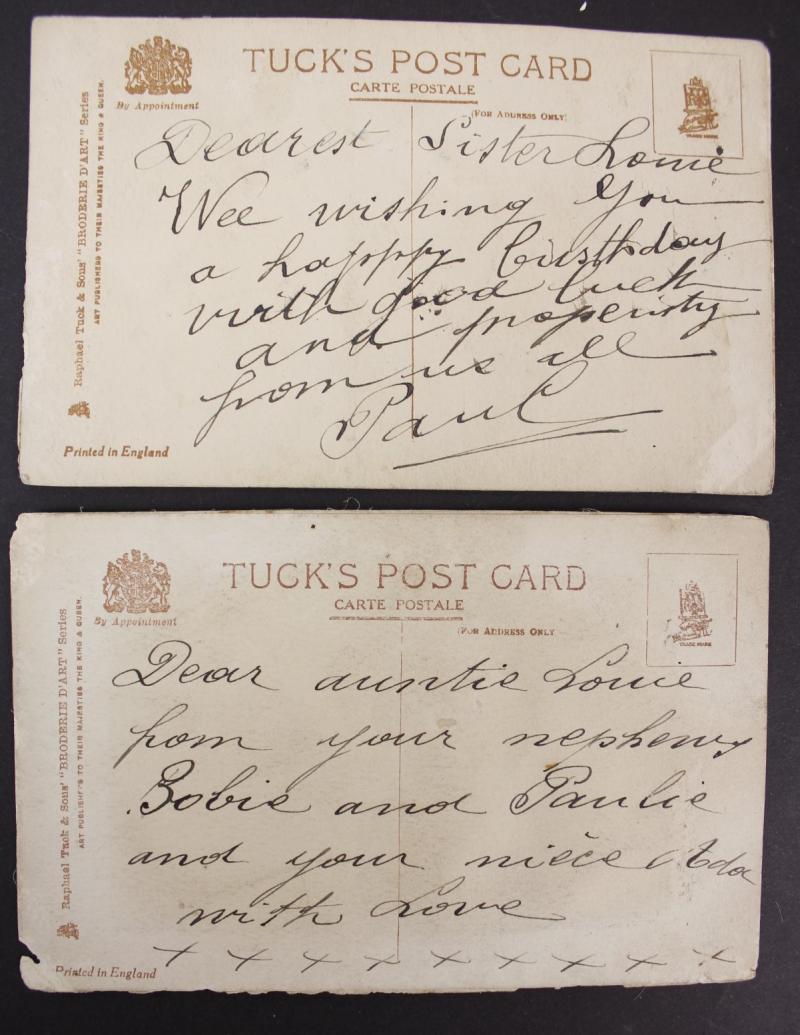 TUCK'S POST CARD
CARTE POSTALE
By Appointment
(FOR ADDRESS ONLY)
TRADE MARK
Raphael Tuck & Sons' "BRODERIE D'ART" Series
ART PUBLISHERS TO THEIR MAJESTIES THE KING & QUEEN.
Dearest Sister Louie
Wee wishing You
a happpy birthday
with good luck
and properisty
from us all
Paul
Printed in England
TUCK'S POST CARD
CARTE POSTALE
By Appointment
(FOR ADDRESS ONLY
TRADE MARK
Raphael Tuck & Sons' "BRODERIE D'ART" Series
ART PUBLISHERS TO THEIR MAJESTIES THE KING & QUEEN.
Dear auntie Louie
from your nephews
Bobie and Paulie
and your niéce Ada
with Love
x x x x x x x x x
Printed in England